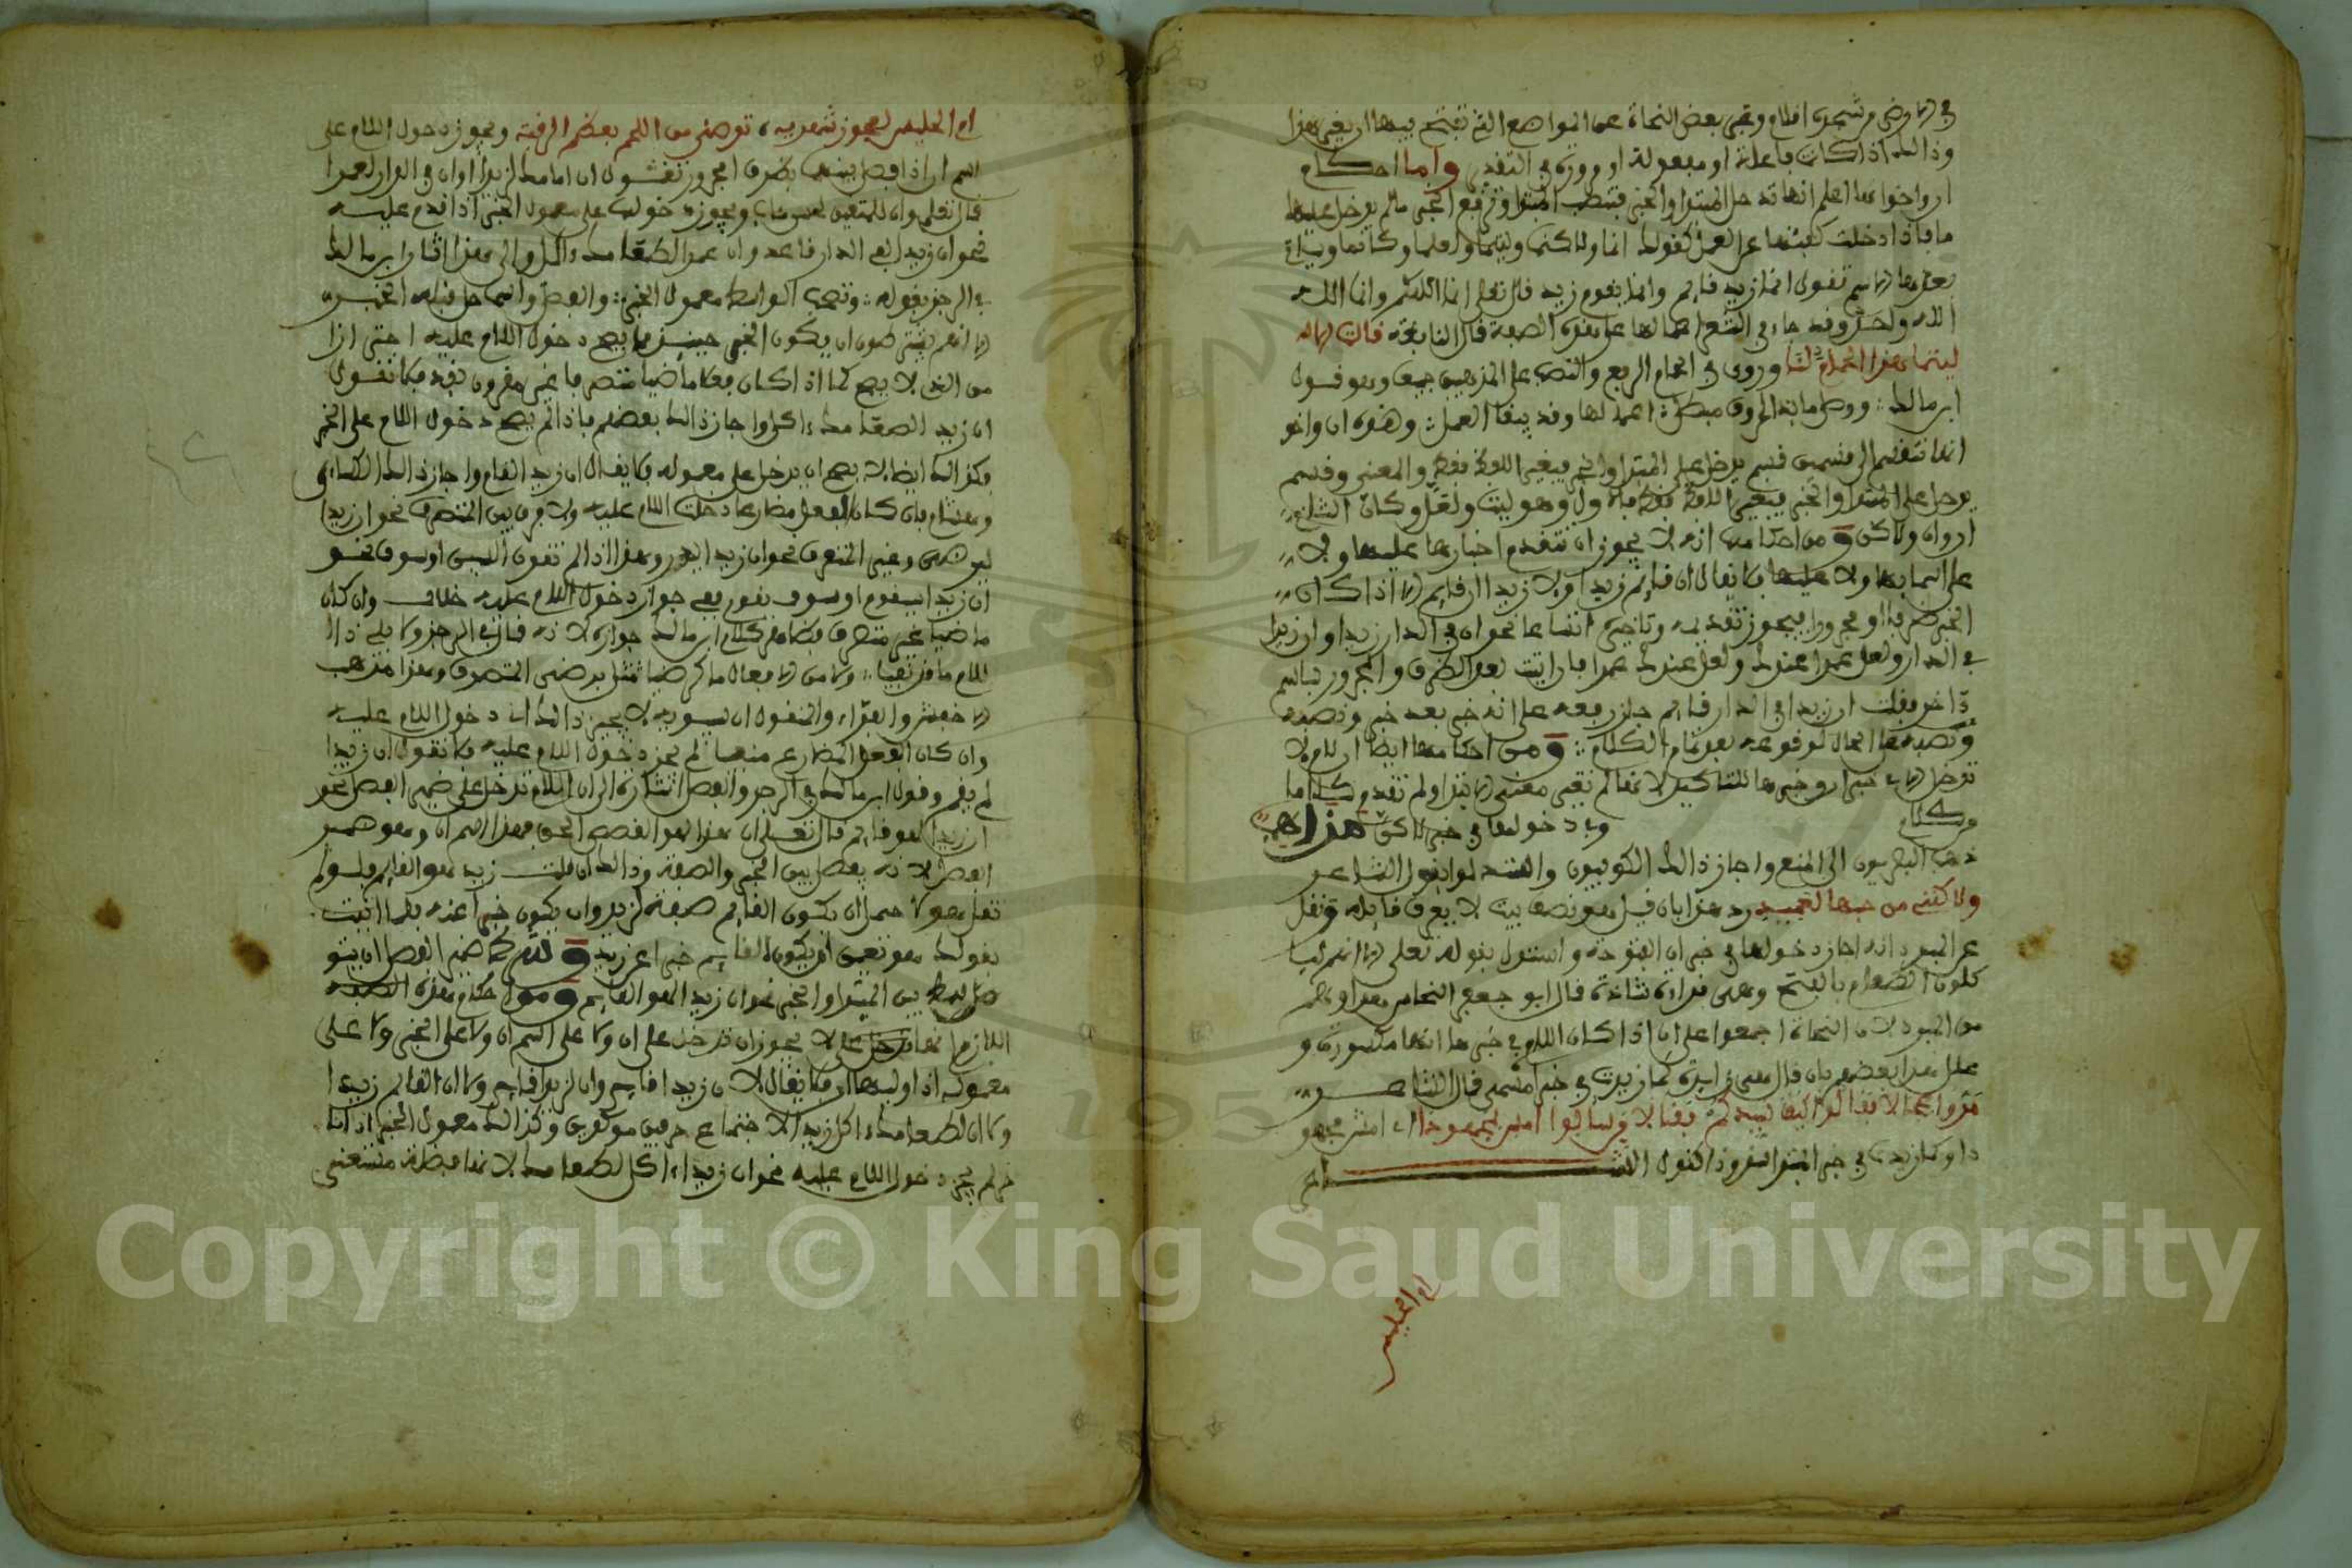 وذالك اذا كانت فاعلة او مفعولة او مجرورة في التقدير واما احكام
ان واخواتها اعلم انها تدخل المبتدا والخبر فتنصب المبتدا وترفع الخبر مالم يدخل عليها
ما فاذا دخلت كفتها عن العمل كقولك انما ولاكنما وليتما ولعلما وكانما
تقول انما زيد قايم وانما يقوم زيد قال تعلى انما الله
قال النابغة قالت الا
ليتما هذا الحمام لنا وروى في الحمام الرفع والنصب على المذهبين جميعا وهو قول
ابن مالك ووصل ما بذي الحروف مبطل اعمالها وقد يبقا العمل وهذه ان واخو
اتها تنقسم الى قسمين قسم يدخل على المبتدا والخبر فيغير اللفظ والمعنى وقسم
يدخل على المبتدا والخبر فيغير اللفظ فقط فالاول وهو ليت ولعل وكان الثاني
ان وان ولاكن ومن احكامها انه لا يجوز ان تتقدم اخبارها عليها ولا
على اسمايها ولا عليها فلا يقال ان قايم زيدا ولا زيدا ان قايم الا اذا كان
الخبر ظرفا او مجرورا فيجوز تقديمه وتاخيره نحو ان في الدار زيدا وان زيدا
في الدار ولعل عمرا عندك ولعل عندك عمرا فان اتيت بعد الظرف والمجرور باسم
ءاخر فقلت ان زيدا في الدار قايم جاز رفعه على انه خبر بعد خبر ونصبه
ونصبه على الحال لوقوعه بعد تمام الكلام ومن احكامها ايضا ان اللام لا
تدخل الا في خبر ان وخبرها للتاكيد لانها لم تغير معنى الابتدا ولم تتقدم كلاما
وفي دخولها في خبر لاكن مذاهب
ذهب البصريون الى المنع واجاز ذالك الكوفيون وانشدوا قول الشاعر
ولاكنني من حبها لعميد ورد هذا بان قيل هو نصف بيت لا يعرف قايله ونقل
عن المبرد انه اجاز دخولها في خبر ان المفتوحة واستدل بقوله تعلى الا انهم ليا
كلون الطعام بالفتح وهي قراءة شاذة قال ابو جعفر النحاس هذا وهم
من المبرد لان النحاة اجمعوا على ان اذا كان اللام في خبرها انها مكسورة و
علل هذا بعضهم بان قال هي زايدة كما زيدت في خبر امسى قال الشاعر
مروا عجالا فقالوا كيف سيدكم فقال من سالوا امسى لمجهودا اي امسى مجهو
دا وكما زيدت في خبر المبتدا شذوذا كقول الشاعر
ام الحليس
ام الحليس لعجوز شهربه ترضى من اللحم بعظم الرقبه ويجوز دخول اللام على
اسم ان اذا فصل بينهما بظرف او مجرور تقول ان امامك لزيدا وان في الدار لعمرا
قال تعلى وان للمتقين لحسن مئاب ويجوز دخولها على معمول الخبر اذا تقدم عليه
نحو ان زيدا لفي الدار قاعد وان عمرا لطعامك ءاكل والى هذا اشار ابن مالك
في الرجز بقوله وتصحب الواسط معمول الخبر والفصل واسما حل قبله الخبر
الا انهم يشترطون ان يكون الخبر حينئذ مما يصح دخول اللام عليه احترازا
من الذي لا يصح كما اذا كان فعلا ماضيا متصرفا غير مقرون بقد فلا تقول
ان زيدا لطعامك اكل واجاز ذالك بعضهم فاذا لم يصح دخول اللام على الخبر
فكذالك ايضا لا يصح ان يدخل على معموله فلا يقال ان زيدا لقام واجاز ذالك الكساءي
وهشام فان كان الفعل مضارعا دخلت اللام عليه ولا فرق بين المتصرف نحو ان زيدا
ليرضى وغير المتصرف نحو ان زيدا ليذر وهذا اذا لم تقترن السين او سوف نحو
ان زيدا سيقوم او سوف يقوم ففي جواز دخول اللام عليه خلاف وان كان
ماضيا غير متصرف فظاهر كلام ابن مالك جوازه لانه قال في الرجز ولا يلي ذا ال
للام ما قد نفيا ولا من الافعال ما كرضيا مثل برضى المتصرف وهذا مذهب
الاخفش والفراء والمنقول ان سيبويه لا يجيز ذالك اي دخول اللام عليه
وان كان الفعل المضارع منفيا لم يجز دخول اللام عليه فلا تقول ان زيدا
لم يقم وقول ابن مالك في الرجز والفصل اشارة الى ان اللام تدخل على ضمير الفصل نحو
ان زيدا لهو قايم قال تعلى ان هذا لهو القصص الحق فهذا اسم ان وهو ضمير
الفصل لانه يفصل بين الخبر والصفة وذالك ان قلت زيد هو القايم فلو لم
تقل هو لاحتمل ان يكون القايم صفة لزيد وان يكون خبرا عنه فلما اتيت
بقولك هو تعين ان يكون القايم خبرا عن زيد وشرط ضمير الفصل ان يتو
سط بين المبتدا والخبر نحو ان زيدا لهو القايم ومن احكام هذه
اللام انها لا يجوز ان تدخل على ان ولا على اسم ان ولا على الخبر ولا على
معموله اذا وليها ان فلا يقال لان زيدا قايم وان لزيدا قايم ولا ان لقايم زيدا
ولا ان لطعامك اكل زيدا لاجتماع حرفين موكدين وكذالك معمول الخبر اذا تا
خر لم يجز دخول اللام عليه نحو ان زيدا اكل لطعامك لانها فضلة مستغنى